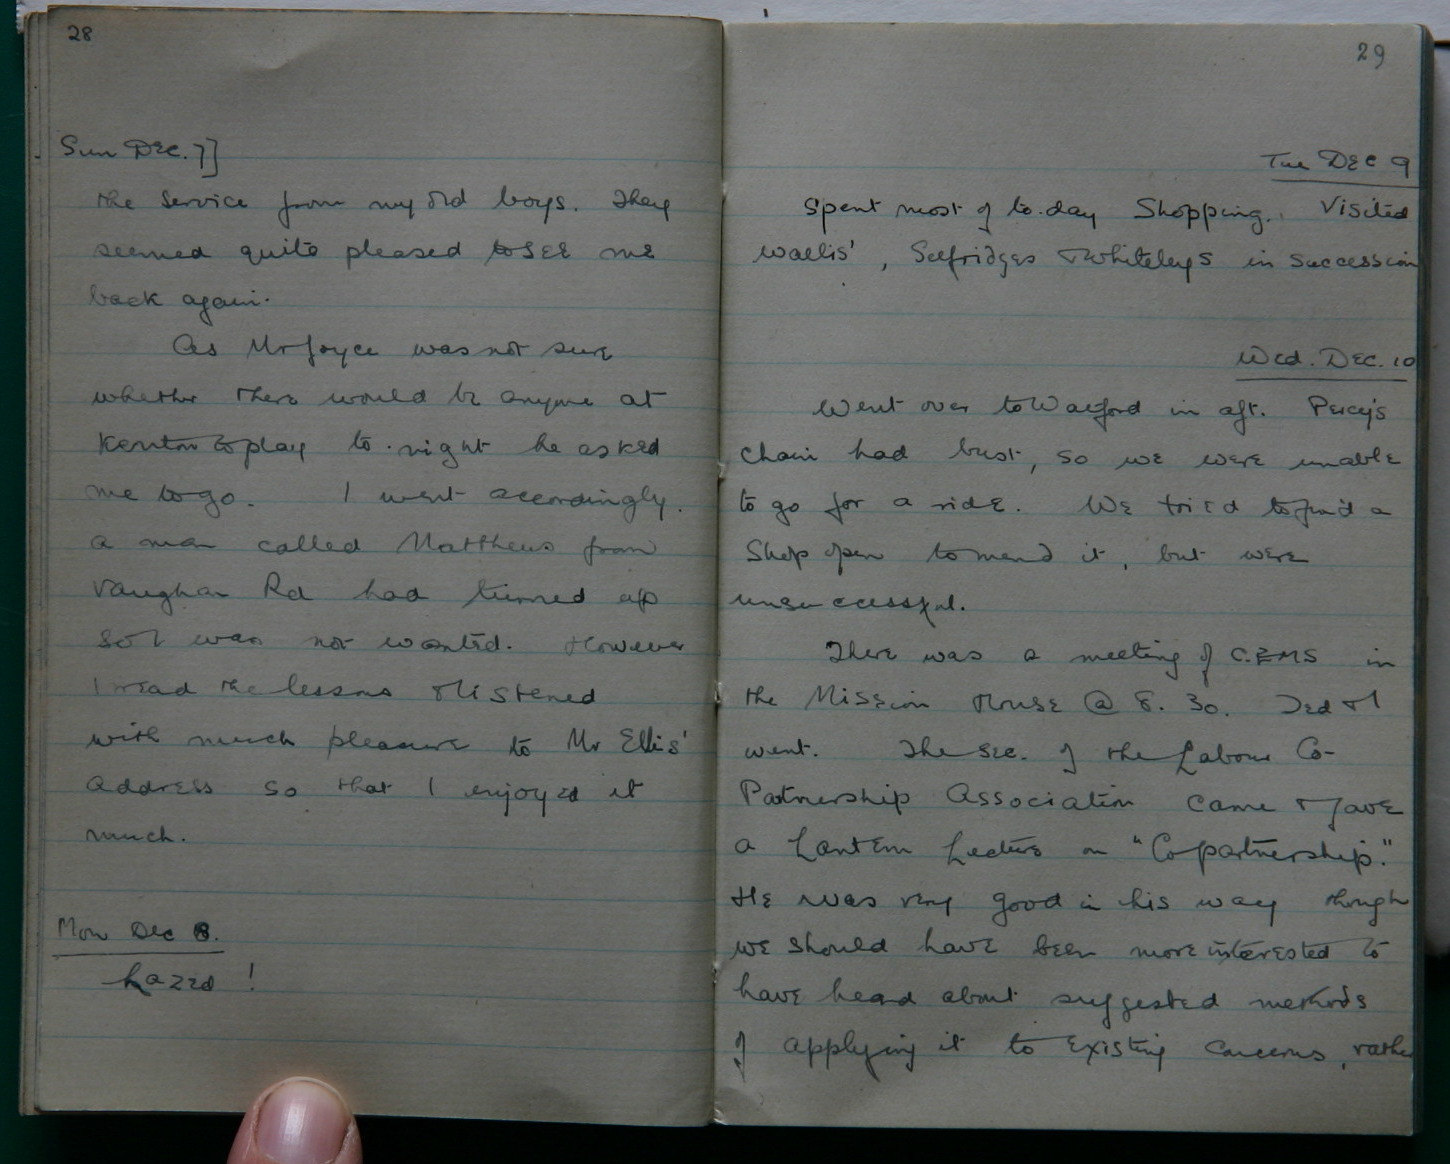 28
Sun Dec. 7]
the service from my old boys. They
seemed quite pleased to see me
back again.
As Mr Joyce was not sure
whether there would be anyone at
Kenton to play to-night he asked
me to go. I went accordingly.
a man called Matthews from
Vaughan Rd had turned up
so I was not wanted. However
I read the lessons & listened
with much pleasure to Mr Ellis'
address so that I enjoyed it
much.
Mon Dec 8.
Lazed !
29
Tue Dec 9
Spent most of to-day Shopping. Visited
Wallis', Selfridges & Whiteleys in succession
Wed. Dec. 10
Went over to Watford in aft. Percy's
chain had bust, so we were unable
to go for a ride. We tried to find a
Shop open to mend it, but were
unsuccessful.
There was a meeting of C.E.M.S in
the Mission House @ 8.30. Ted & I
went. The Sec. of the Labour Co-
Partnership Association came & gave
a Lantern Lecture on "Copartnership."
He was very good in his way though
we should have been more interested to
have heard about suggested methods
of applying it to existing concerns, rather